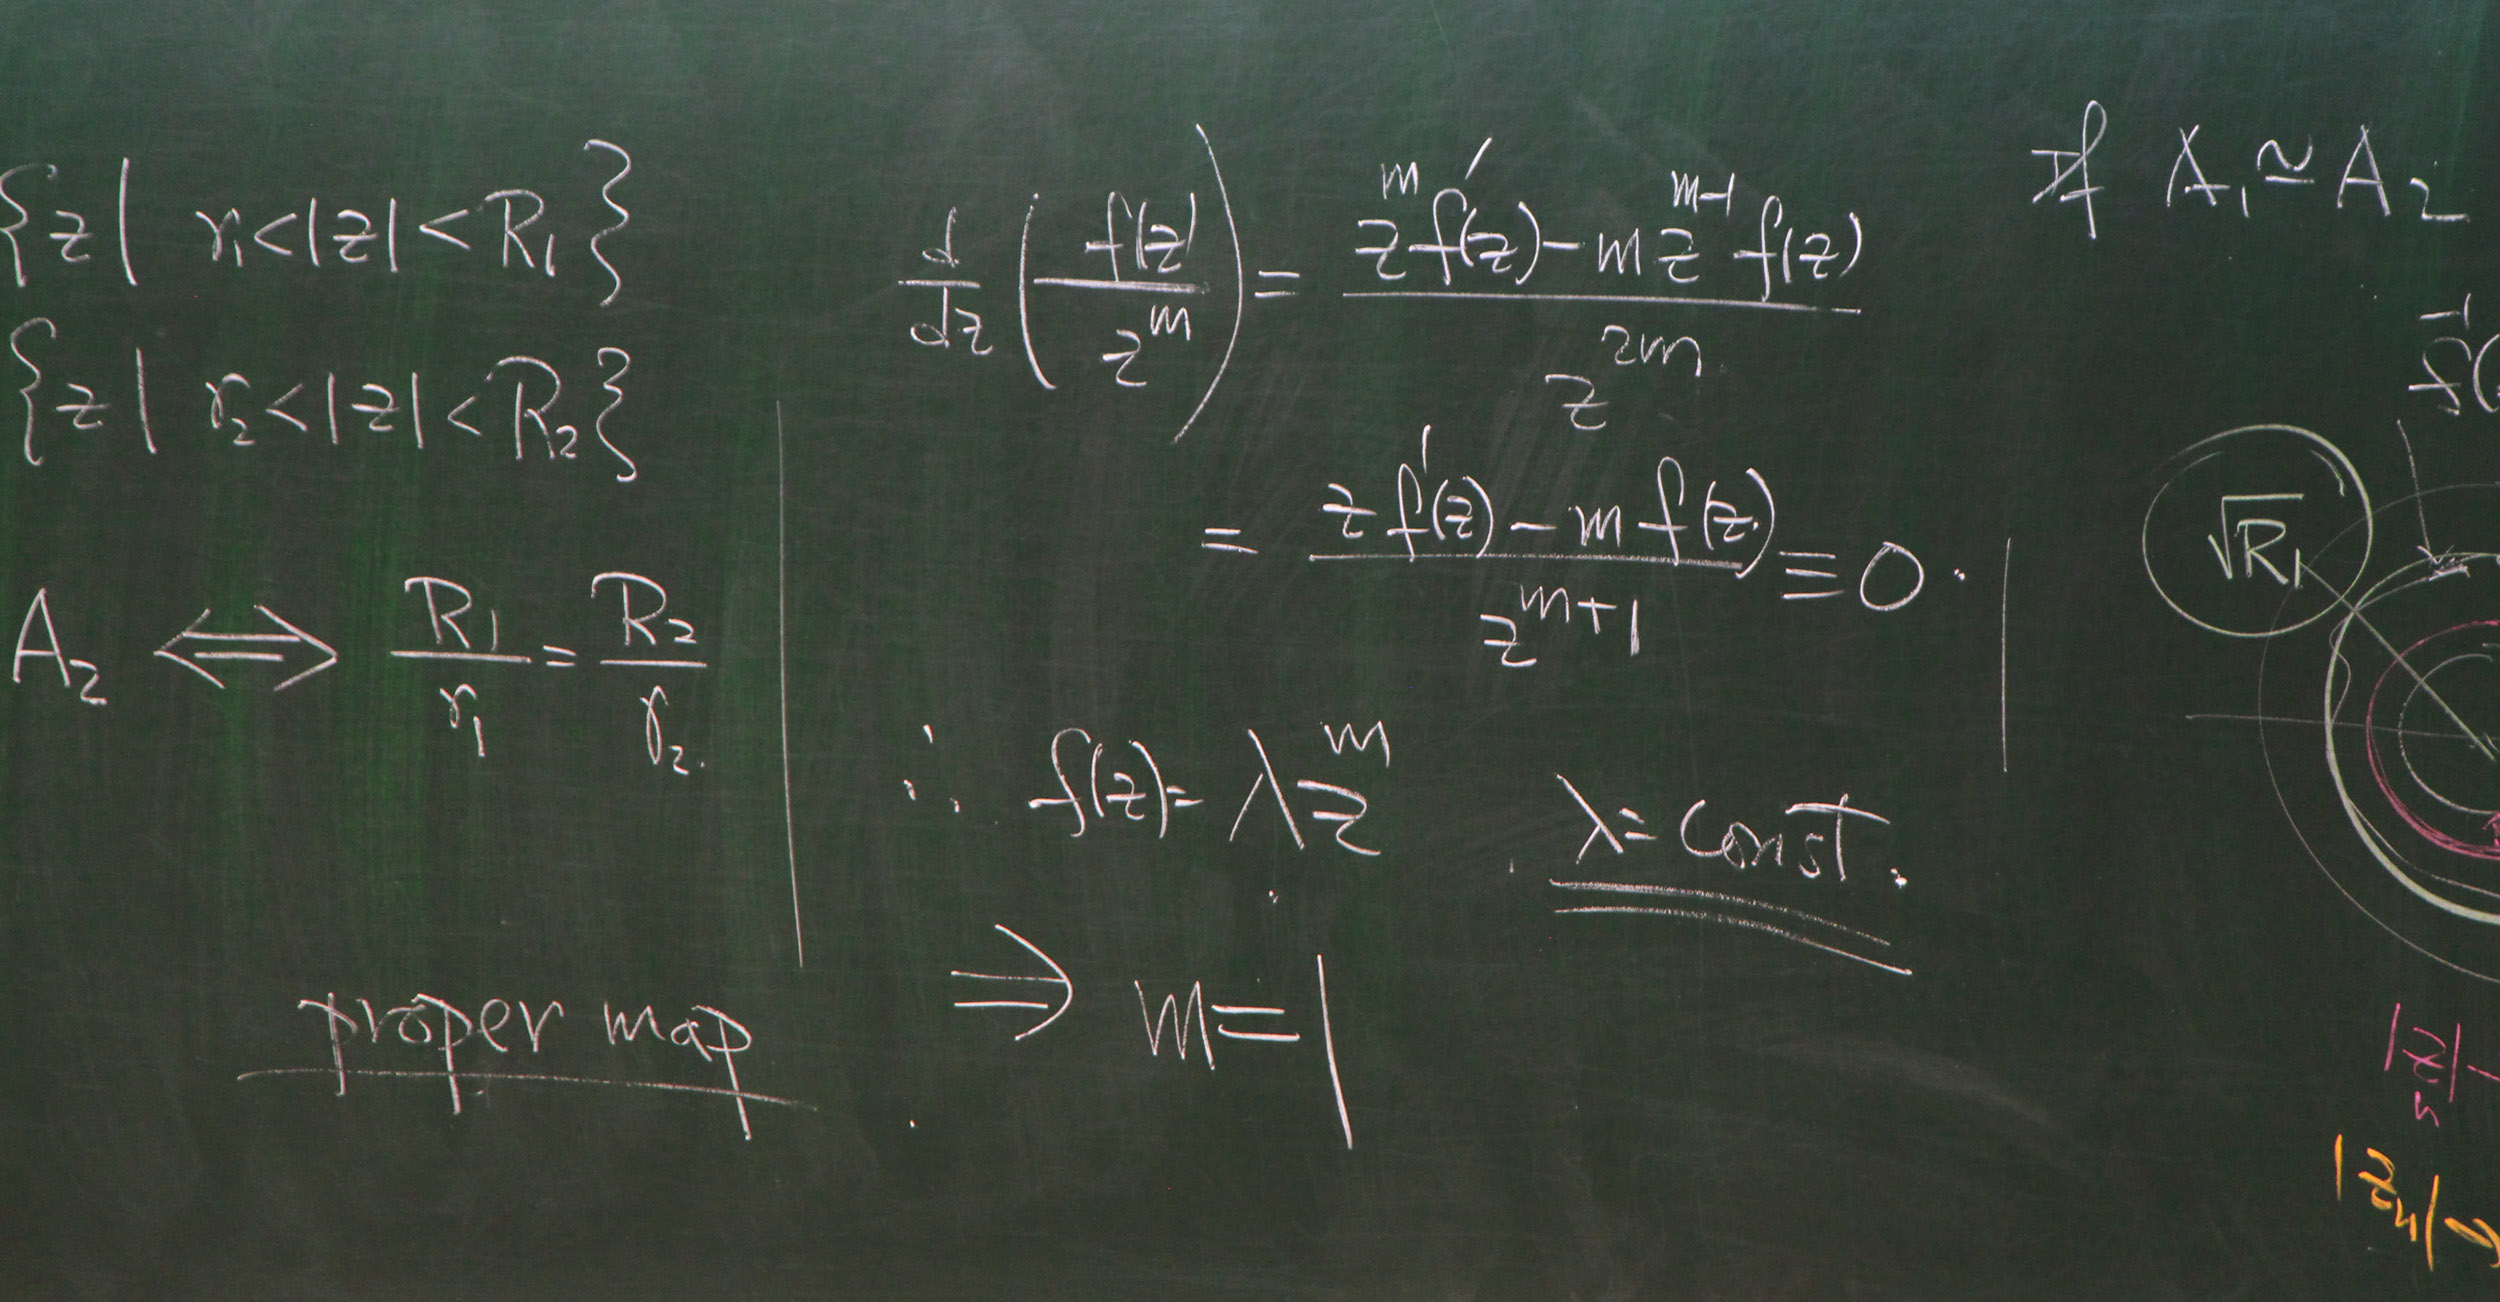 {z| r₁<|z|<R₁}
{z| r₂<|z|<R₂}
A₂ ⟺ R₁/r₁ = R₂/r₂.
proper map
d/dz (f(z)/z^m) = (z^m f'(z) - m z^(m-1) f(z))/z^(2m)
= (z f'(z) - m f(z))/z^(m+1) ≡ 0.
∴ f(z) = λz^m λ = const.
⇒ m=1
If A₁ ≃ A₂
f⁻¹(
√R₁